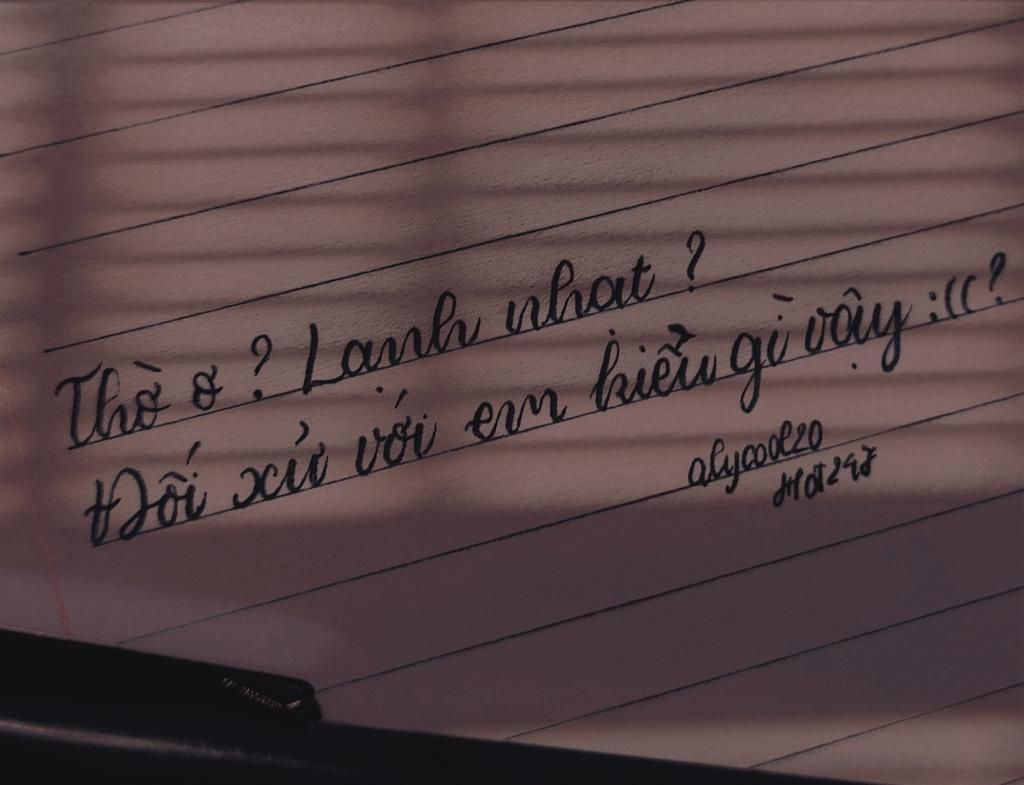 Thờ ơ? Lạnh nhạt?
Đối xử với em kiểu gì vậy :((?
alycool20